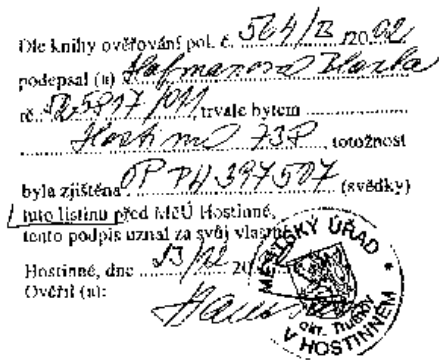 Dle knihy ověřování poř. č. 564/II /2002
podepsal (a) Hofmanová
rč. trvale bytem
Hostinné 738, totožnost
byla zjištěna OP PH 397507 (svědky)
tuto listinu před MěÚ Hostinné,
tento podpis uznal za svůj vlastní
Hostinné, dne 13/12 20
Ověřil (a):
MĚSTSKÝ ÚŘAD
okr. Trutnov
V HOSTINNÉM